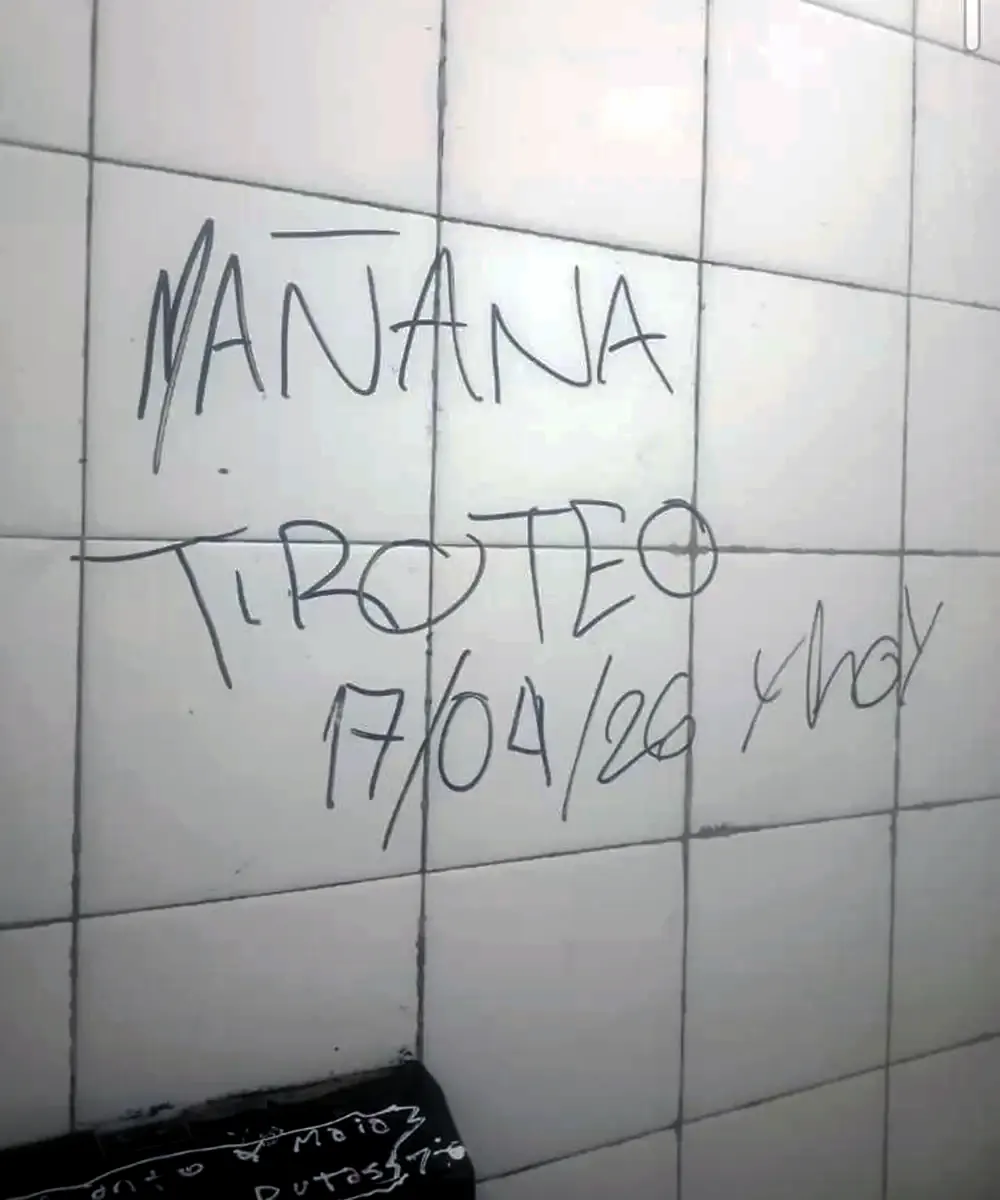 MAÑANA
TIROTEO
17/04/26 y hoy
Maio
Putas